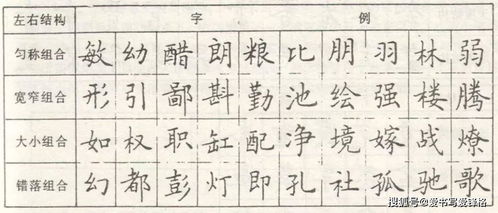 左右结构 字 例
匀称组合 敏 幼 醋 朗 粮 比 朋 羽 林 弱
宽窄组合 形 引 鄙 斟 勤 池 绘 强 楼 腾
大小组合 如 权 职 缸 配 净 境 嫁 战 燎
错落组合 幻 都 彭 灯 即 孔 社 孤 驰 歌
搜狐号@爱书写爱锋格